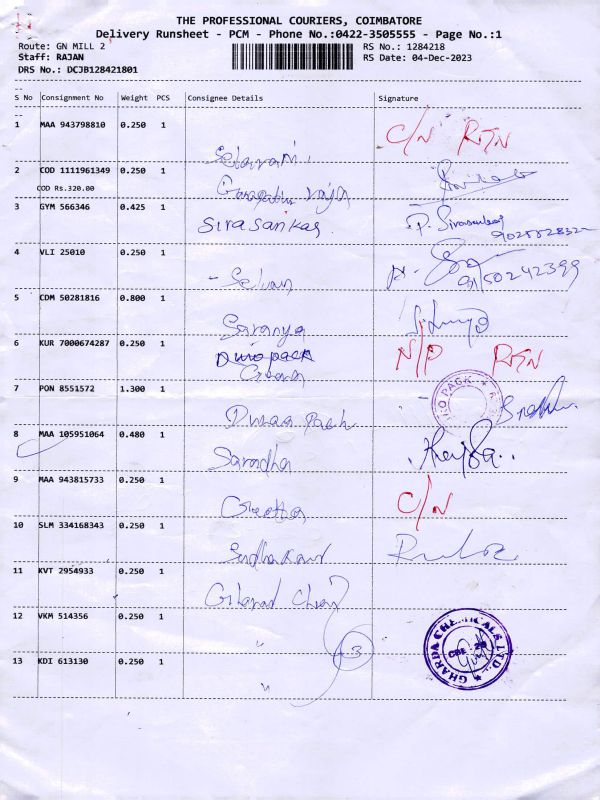 THE PROFESSIONAL COURIERS, COIMBATORE
Delivery Runsheet - PCM - Phone No.:0422-3505555 - Page No.:1
Route: GN MILL 2 RS No.: 1284218
Staff: RAJAN RS Date: 04-Dec-2023
DRS No.: DCJB128421801
S No Consignment No Weight PCS Consignee Details Signature
1 MAA 943798810 0.250 1 C/N RTN
2 COD 1111961349 0.250 1
COD Rs.320.00
3 GYM 566346 0.425 1 Sivasankar P. Sivasankar
4 VLI 25010 0.250 1 Selvan
5 CDM 50281816 0.800 1 Saranya
6 KUR 7000674287 0.250 1 N/P RTN
7 PON 8551572 1.300 1
8 MAA 105951064 0.480 1 Saradha
9 MAA 943815733 0.250 1 Geetha C/N
10 SLM 334168343 0.250 1 Sudhakar
11 KVT 2954933 0.250 1
12 VKM 514356 0.250 1 "
13 KDI 613130 0.250 1 " 3
GHARDA CHEMICALS LTD.